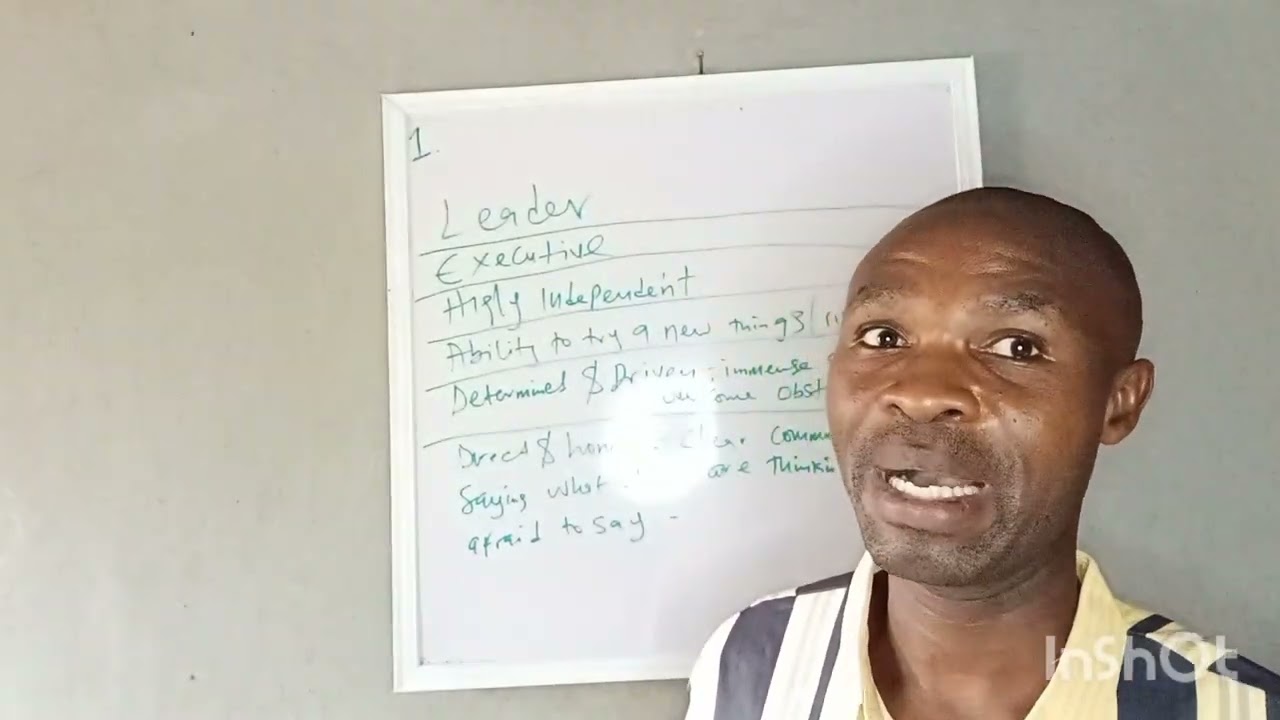 1.
Leader
Executive
Higly Independent
Ability to try a new things/
Determined & Driven : immense
ome Obst
Direct & hon : clear Commu
Saying what are thinkin
afraid to say -
InShOt